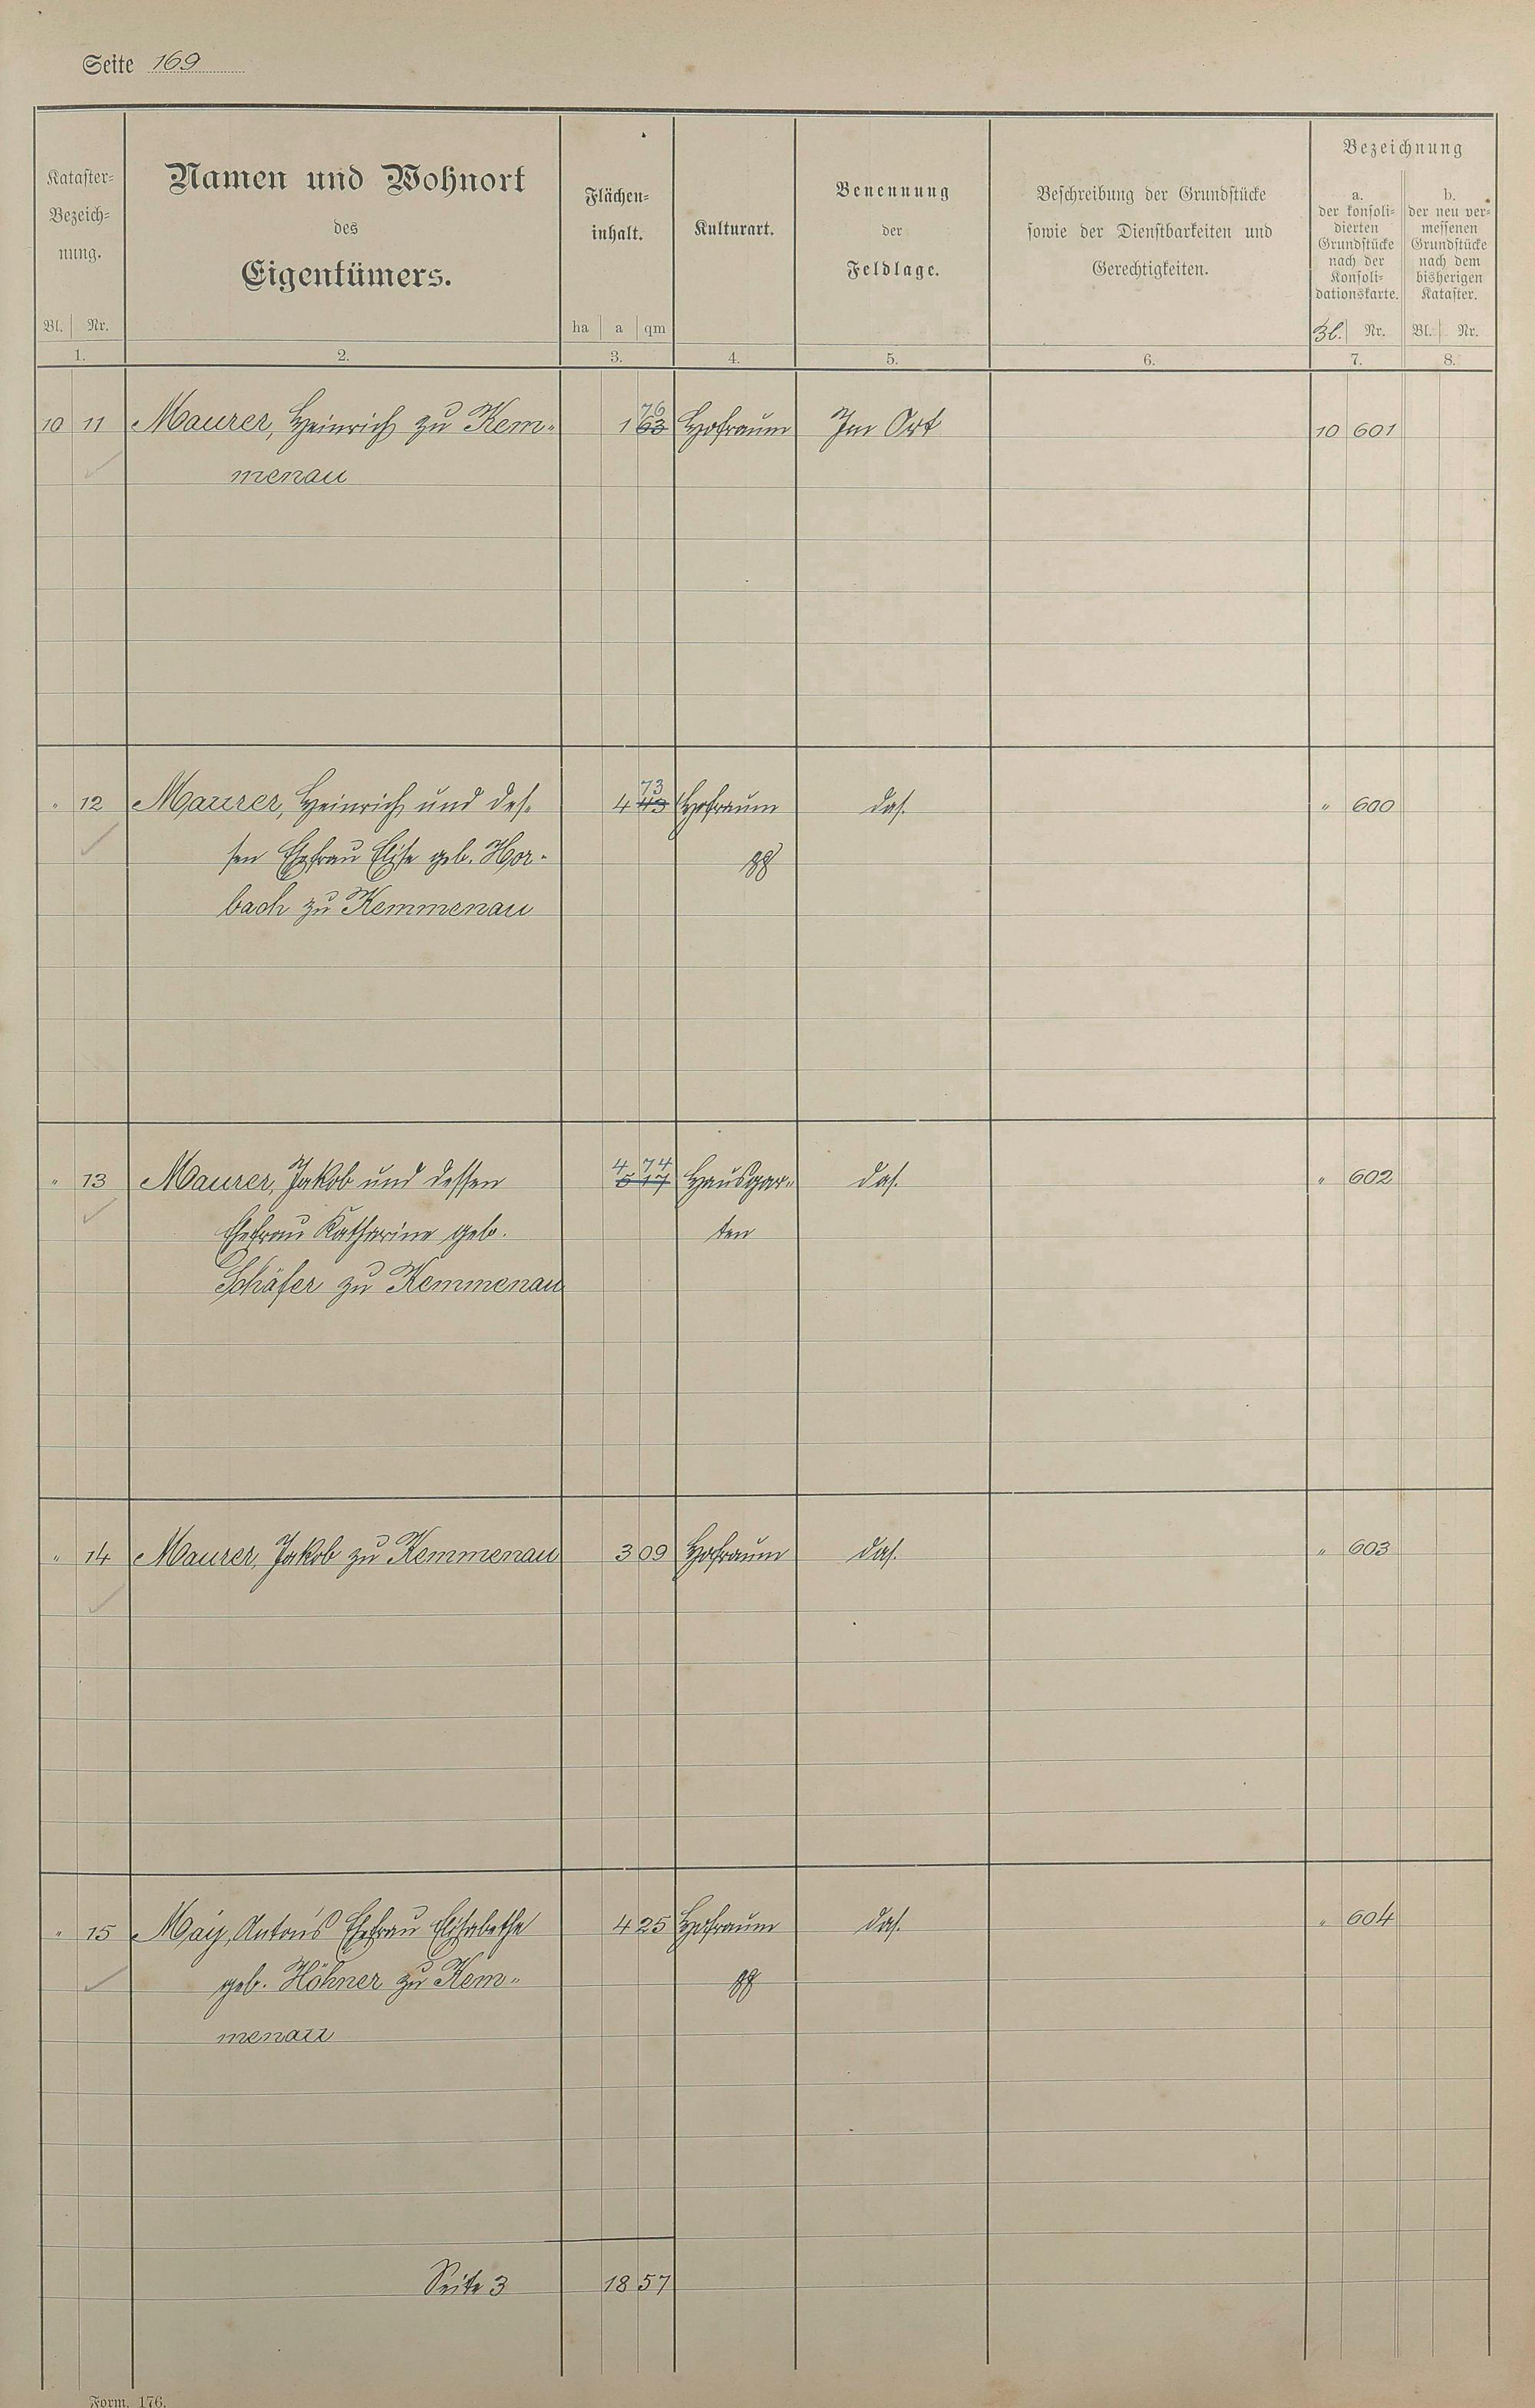 Seite 169
Kataster-
Bezeich-
nung.
Bl. Nr.
1.
Namen und Wohnort
des
Eigentümers.
2.
Flächen-
inhalt.
ha a qm
3.
Kulturart.
4.
Benennung
der
Feldlage.
5.
Beschreibung der Grundstücke
sowie der Dienstbarkeiten und
Gerechtigkeiten.
6.
Bezeichnung
a.
der konsoli-
dierten
Grundstücke
nach der
Konsoli-
dationskarte.
Bl. Nr.
7.
b.
der neu ver-
messenen
Grundstücke
nach dem
bisherigen
Kataster.
Bl. Nr.
8.
76
10 11 Maurer, Heinrich zu Kem- 1 63 Hofraum Im Ort 10 601
menau
73
" 12 Maurer, Heinrich und des- 4 43 Hofraum das. " 600
sen Ehefrau Elise geb. Hor-
bach zu Kemmenau
4 74
" 13 Maurer, Jakob und dessen 5 17 Hausgar- das. " 602
Ehefrau Katharine geb. ten
Schäfer zu Kemmenau
" 14 Maurer, Jakob zu Kemmenau 3 09 Hofraum das. " 603
" 15 May, Anton's Ehefrau Elisabethe 4 25 Hofraum das. " 604
geb. Höhner zu Kem-
menau
Seite 3 18 57
Form. 176.